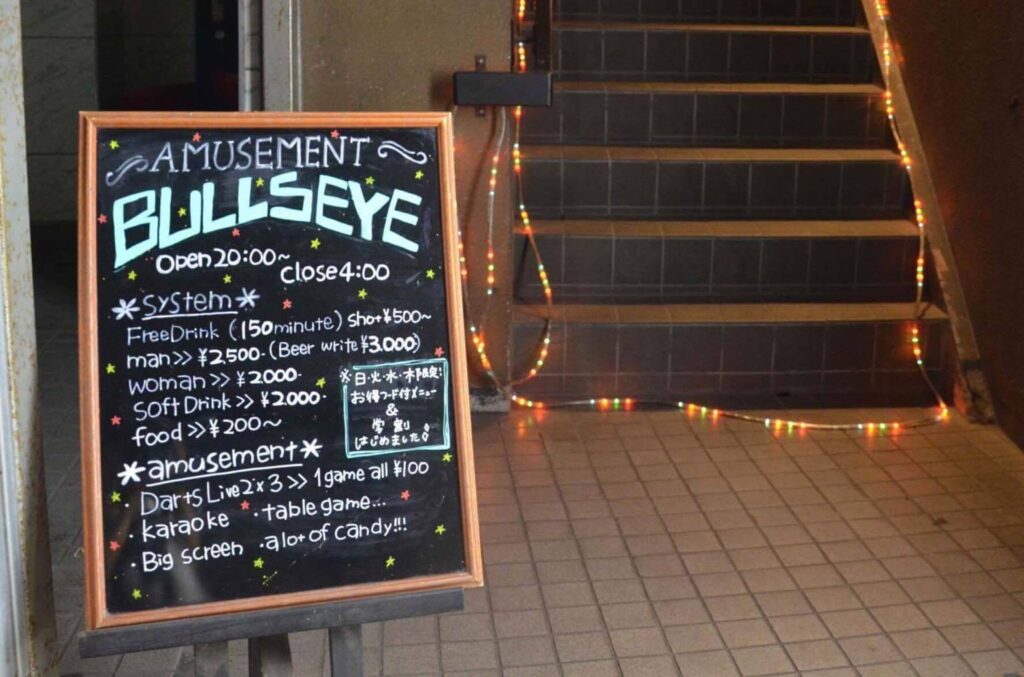 AMUSEMENT
BULLSEYE
open20:00~
close4:00
*system*
FreeDrink (150minute) Shot¥500~
man>> ¥2,500・(Beer write ¥3,000)
woman>> ¥2,000・
SOft Drink>> ¥2,000・
food >> ¥200~
※日・火・水・木限定!
お得フード付メニュー
&
学割
はじめました◊
*amusement*
・Darts Live2×3>> 1game all ¥100
・karaoke ・table game...
・Big screen ・alot of candy!!!